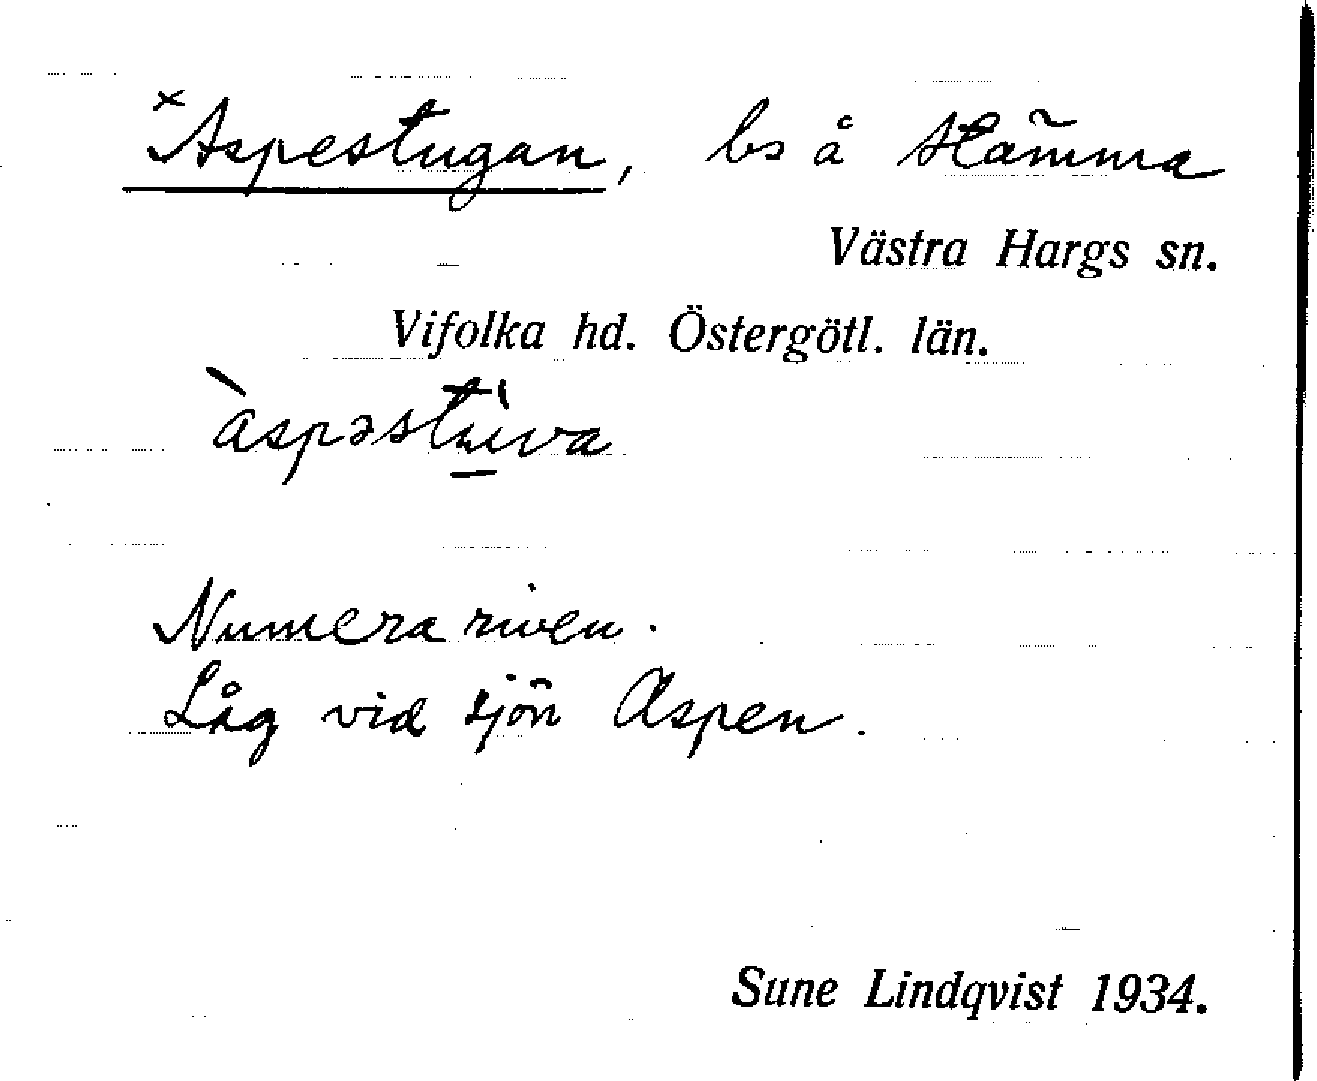 ×Aspestugan, bs å Hämma
Västra Hargs sn.
Vifolka hd. Östergötl. län.
àspəstùva
Numera riven.
Låg vid sjön Aspen.
Sune Lindqvist 1934.